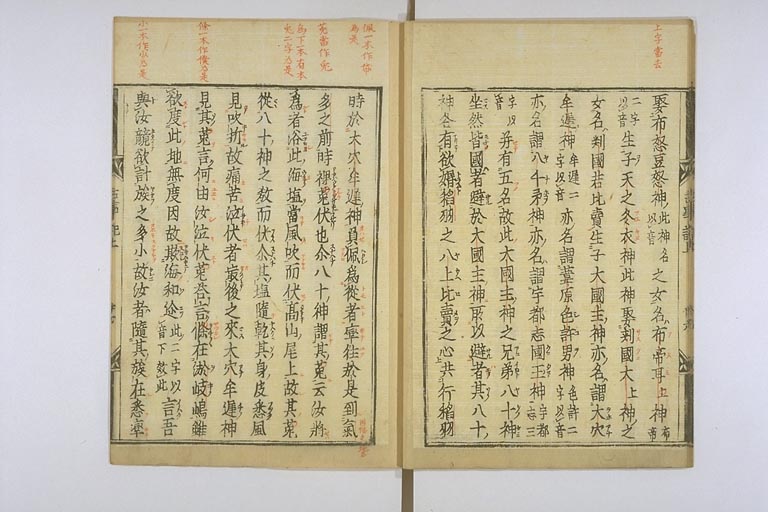 上字當去
娶布怒豆怒神此神名以音之女名布帝耳上神布帝
二字以音生子天之冬衣神此神娶刺國大上神之
女名刺國若比賣生子大國主神亦名謂大穴
牟遲神牟遲二字以音亦名謂葦原色許男神色許二字以音
亦名謂八千矛神亦名謂宇都志國玉神宇都志三
字以音并有五名故此大國主神之兄弟八十神
坐然皆國者避於大國主神所以避者其八十
神各有欲婚稻羽之八上比賣之心共行稻羽
佩一本作帒為是
菟當作兔
為下一本有本
兔二字乃是
條一本作僕乃是
小一本作少乃是
時於大穴牟遲神負佩為從者率往於是到氣
多之前時裸菟伏也尒八十神謂其菟云汝將
為者浴此海塩當風吹而伏高山尾上故其菟
從八十神之教而伏尒其塩隨乾其身皮悉風
見吹折故痛苦泣伏者最後之來大穴牟遲神
見其菟言何由汝泣伏菟荅言條在淤岐嶋雖
欲度此地無度因故欺海和迩此二字以音下效此言吾
與汝競欲計族之多小故汝者隨其族在悉率